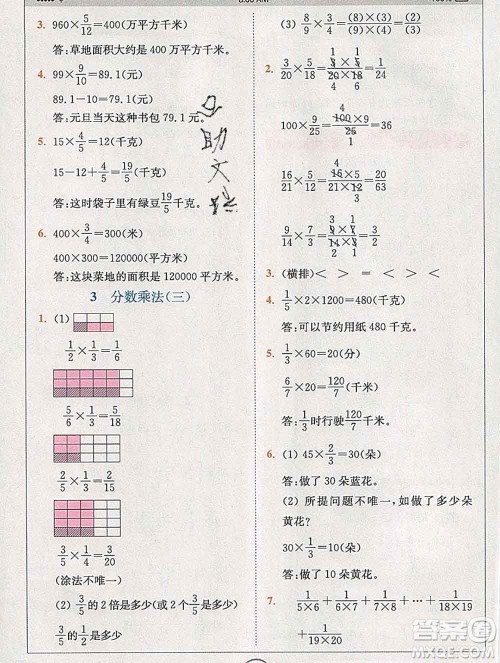 3. 960×5/12=400(万平方千米)
答:草地面积大约是 400 万平方千米。
4. 99×9/10=89.1(元)
89.1-10=79.1(元)
答:元旦当天这种书包 79.1 元。
5. 15×4/5=12(千克)
15-12+4/5=19/5(千克)
答:这时袋子里有绿豆19/5千克。
6. 400×3/4=300(米)
400×300=120000(平方米)
答:这块菜地的面积是 120000 平方米。
3 分数乘法(三)
1. (1)
1/2×1/3=1/6
5/6×1/3=5/18
2/5×1/3=2/15
3/5×1/4=3/20
(涂法不唯一)
(2) 3/5 的 2 倍是多少(或 2 个 3/5 是多少)
3/5 的 1/2 是多少
(3) 2/3×5/8=(2)×(5)/(3)×(8)=(10)/(24)
2. 3/20×5/18=3×5/20×18=1/24
100×9/25=100×9/25=36
16/21×5/12=16×5/21×12=20/63
2/9×3/14=2×3/9×14=1/21
3. (横排) < > < >
4. 1/5×2×1200=480(千克)
答:可以节约用纸 480 千克。
5. 1/3×60=20(分)
6/7×20=120/7(千米)
答:1/3 时行驶120/7千米。
6. (1) 45×2/3=30(朵)
答:做了 30 朵蓝花。
(2) 所提问题不唯一,如做了多少朵
黄花?
30×1/3=10(朵)
答:做了 10 朵黄花。
7. 1/5×6+1/6×7+1/7×8+…+1/18×19
+1/19×20